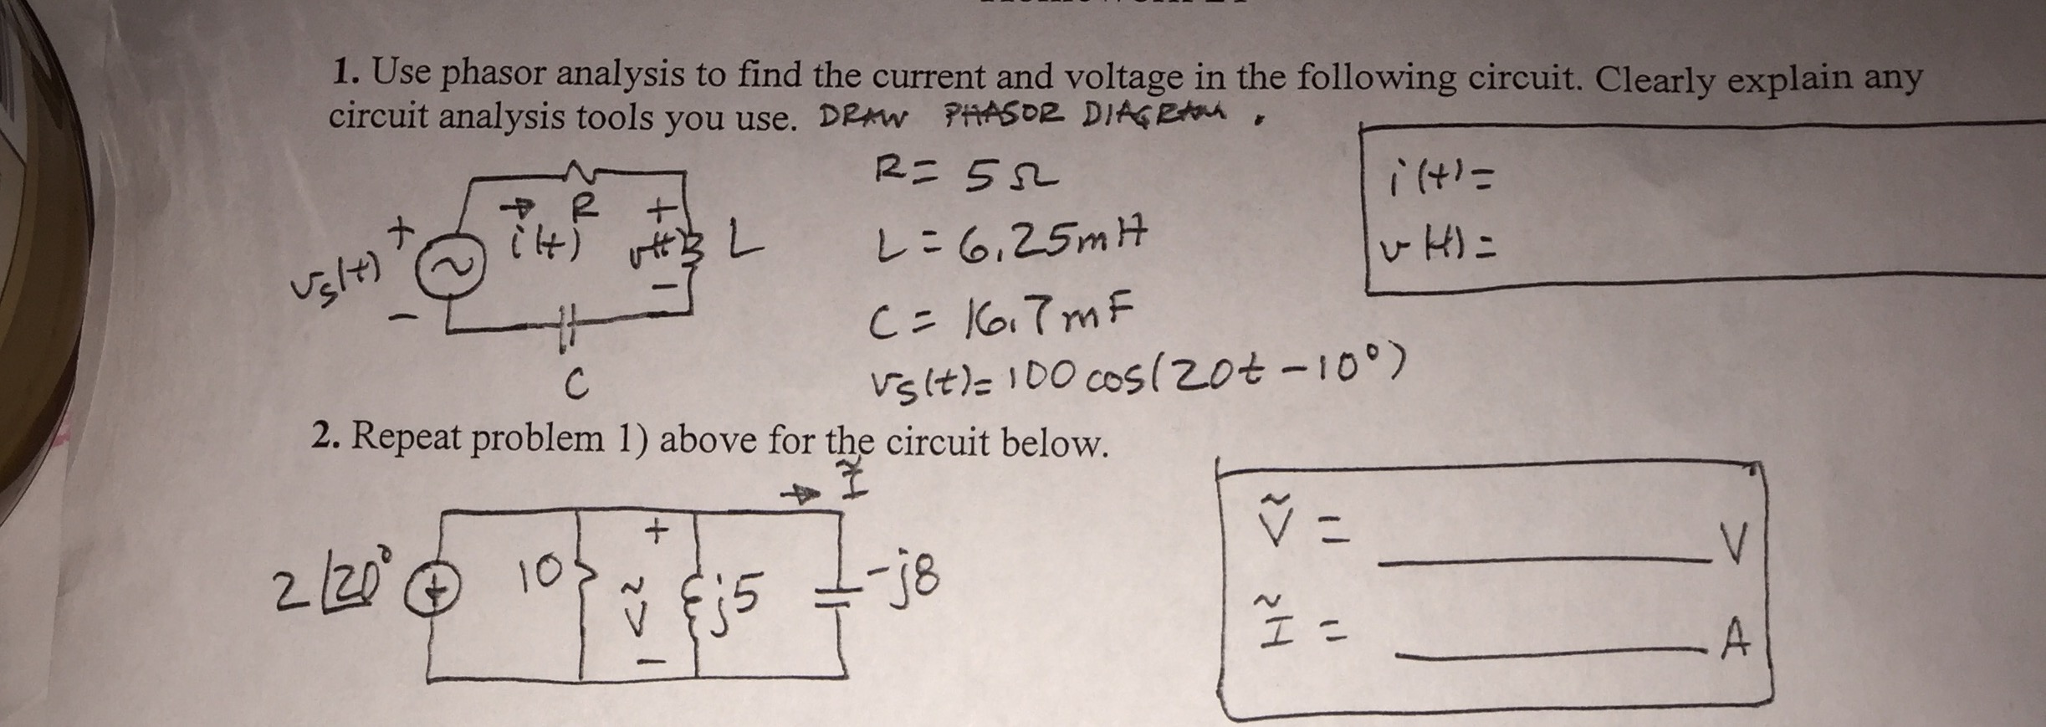 1. Use phasor analysis to find the current and voltage in the following circuit. Clearly explain any
circuit analysis tools you use. DRAW PHASOR DIAGRAM.
R = 5Ω
i(t) =
R
+
i(t)
+
v(t)
L
L = 6.25mH
v(t) =
vs(t)
-
-
C = 16.7mF
C
vs(t) = 100 cos(20t - 10°)
2. Repeat problem 1) above for the circuit below.
Ĩ
Ṽ = ______ V
+
2∠20°
10
Ṽ
j5
-j8
Ĩ = ______ A
-